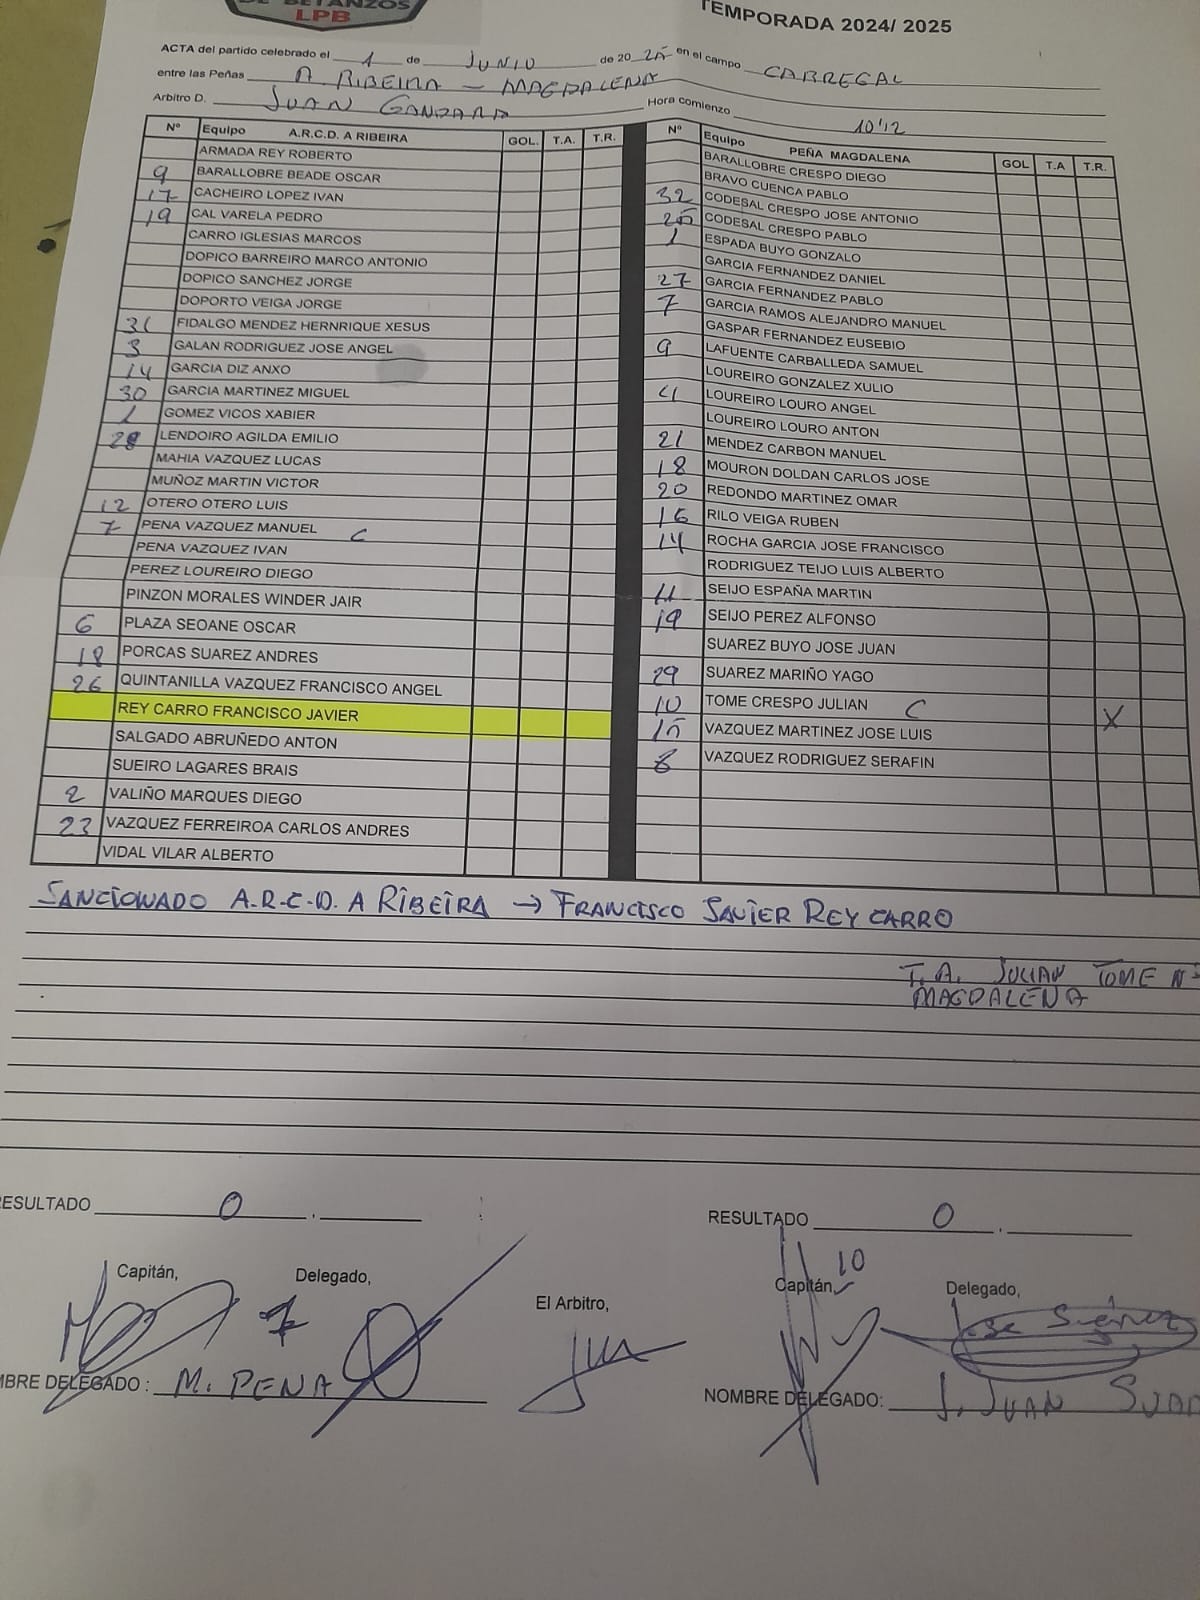 DE BETANZOS
LPB
TEMPORADA 2024/ 2025
ACTA del partido celebrado el 1 de JUNIO de 2025 en el campo CARREGAL
entre las Peñas A RIBEIRA - MAGDALENA
Arbitro D. JUAN GANDARA Hora comienzo 10'12
Nº Equipo A.R.C.D. A RIBEIRA GOL. T.A. T.R.
ARMADA REY ROBERTO
9 BARALLOBRE BEADE OSCAR
17 CACHEIRO LOPEZ IVAN
19 CAL VARELA PEDRO
CARRO IGLESIAS MARCOS
DOPICO BARREIRO MARCO ANTONIO
DOPICO SANCHEZ JORGE
DOPORTO VEIGA JORGE
31 FIDALGO MENDEZ HERNRIQUE XESUS
3 GALAN RODRIGUEZ JOSE ANGEL
14 GARCIA DIZ ANXO
30 GARCIA MARTINEZ MIGUEL
1 GOMEZ VICOS XABIER
28 LENDOIRO AGILDA EMILIO
MAHIA VAZQUEZ LUCAS
MUÑOZ MARTIN VICTOR
12 OTERO OTERO LUIS
7 PENA VAZQUEZ MANUEL C
PENA VAZQUEZ IVAN
PEREZ LOUREIRO DIEGO
PINZON MORALES WINDER JAIR
6 PLAZA SEOANE OSCAR
18 PORCAS SUAREZ ANDRES
26 QUINTANILLA VAZQUEZ FRANCISCO ANGEL
REY CARRO FRANCISCO JAVIER
SALGADO ABRUÑEDO ANTON
SUEIRO LAGARES BRAIS
2 VALIÑO MARQUES DIEGO
23 VAZQUEZ FERREIROA CARLOS ANDRES
VIDAL VILAR ALBERTO
Nº Equipo PEÑA MAGDALENA GOL T.A T.R.
BARALLOBRE CRESPO DIEGO
BRAVO CUENCA PABLO
32 CODESAL CRESPO JOSE ANTONIO
25 CODESAL CRESPO PABLO
1 ESPADA BUYO GONZALO
GARCIA FERNANDEZ DANIEL
27 GARCIA FERNANDEZ PABLO
7 GARCIA RAMOS ALEJANDRO MANUEL
GASPAR FERNANDEZ EUSEBIO
9 LAFUENTE CARBALLEDA SAMUEL
LOUREIRO GONZALEZ XULIO
LOUREIRO LOURO ANGEL
LOUREIRO LOURO ANTON
21 MENDEZ CARBON MANUEL
18 MOURON DOLDAN CARLOS JOSE
20 REDONDO MARTINEZ OMAR
16 RILO VEIGA RUBEN
14 ROCHA GARCIA JOSE FRANCISCO
RODRIGUEZ TEIJO LUIS ALBERTO
11 SEIJO ESPAÑA MARTIN
19 SEIJO PEREZ ALFONSO
SUAREZ BUYO JOSE JUAN
29 SUAREZ MARIÑO YAGO
10 TOME CRESPO JULIAN C X
15 VAZQUEZ MARTINEZ JOSE LUIS
8 VAZQUEZ RODRIGUEZ SERAFIN
SANCIONADO A.R.C.D. A RIBEIRA → FRANCISCO JAVIER REY CARRO
T.A. JULIAN TOME Nº
MAGDALENA
RESULTADO 0 .
RESULTADO 0 .
Capitán, Delegado,
7
El Arbitro,
10
Capitán, Delegado,
Jose Suárez
MBRE DELEGADO : M. PENA
NOMBRE DELEGADO: J. JUAN SUAR